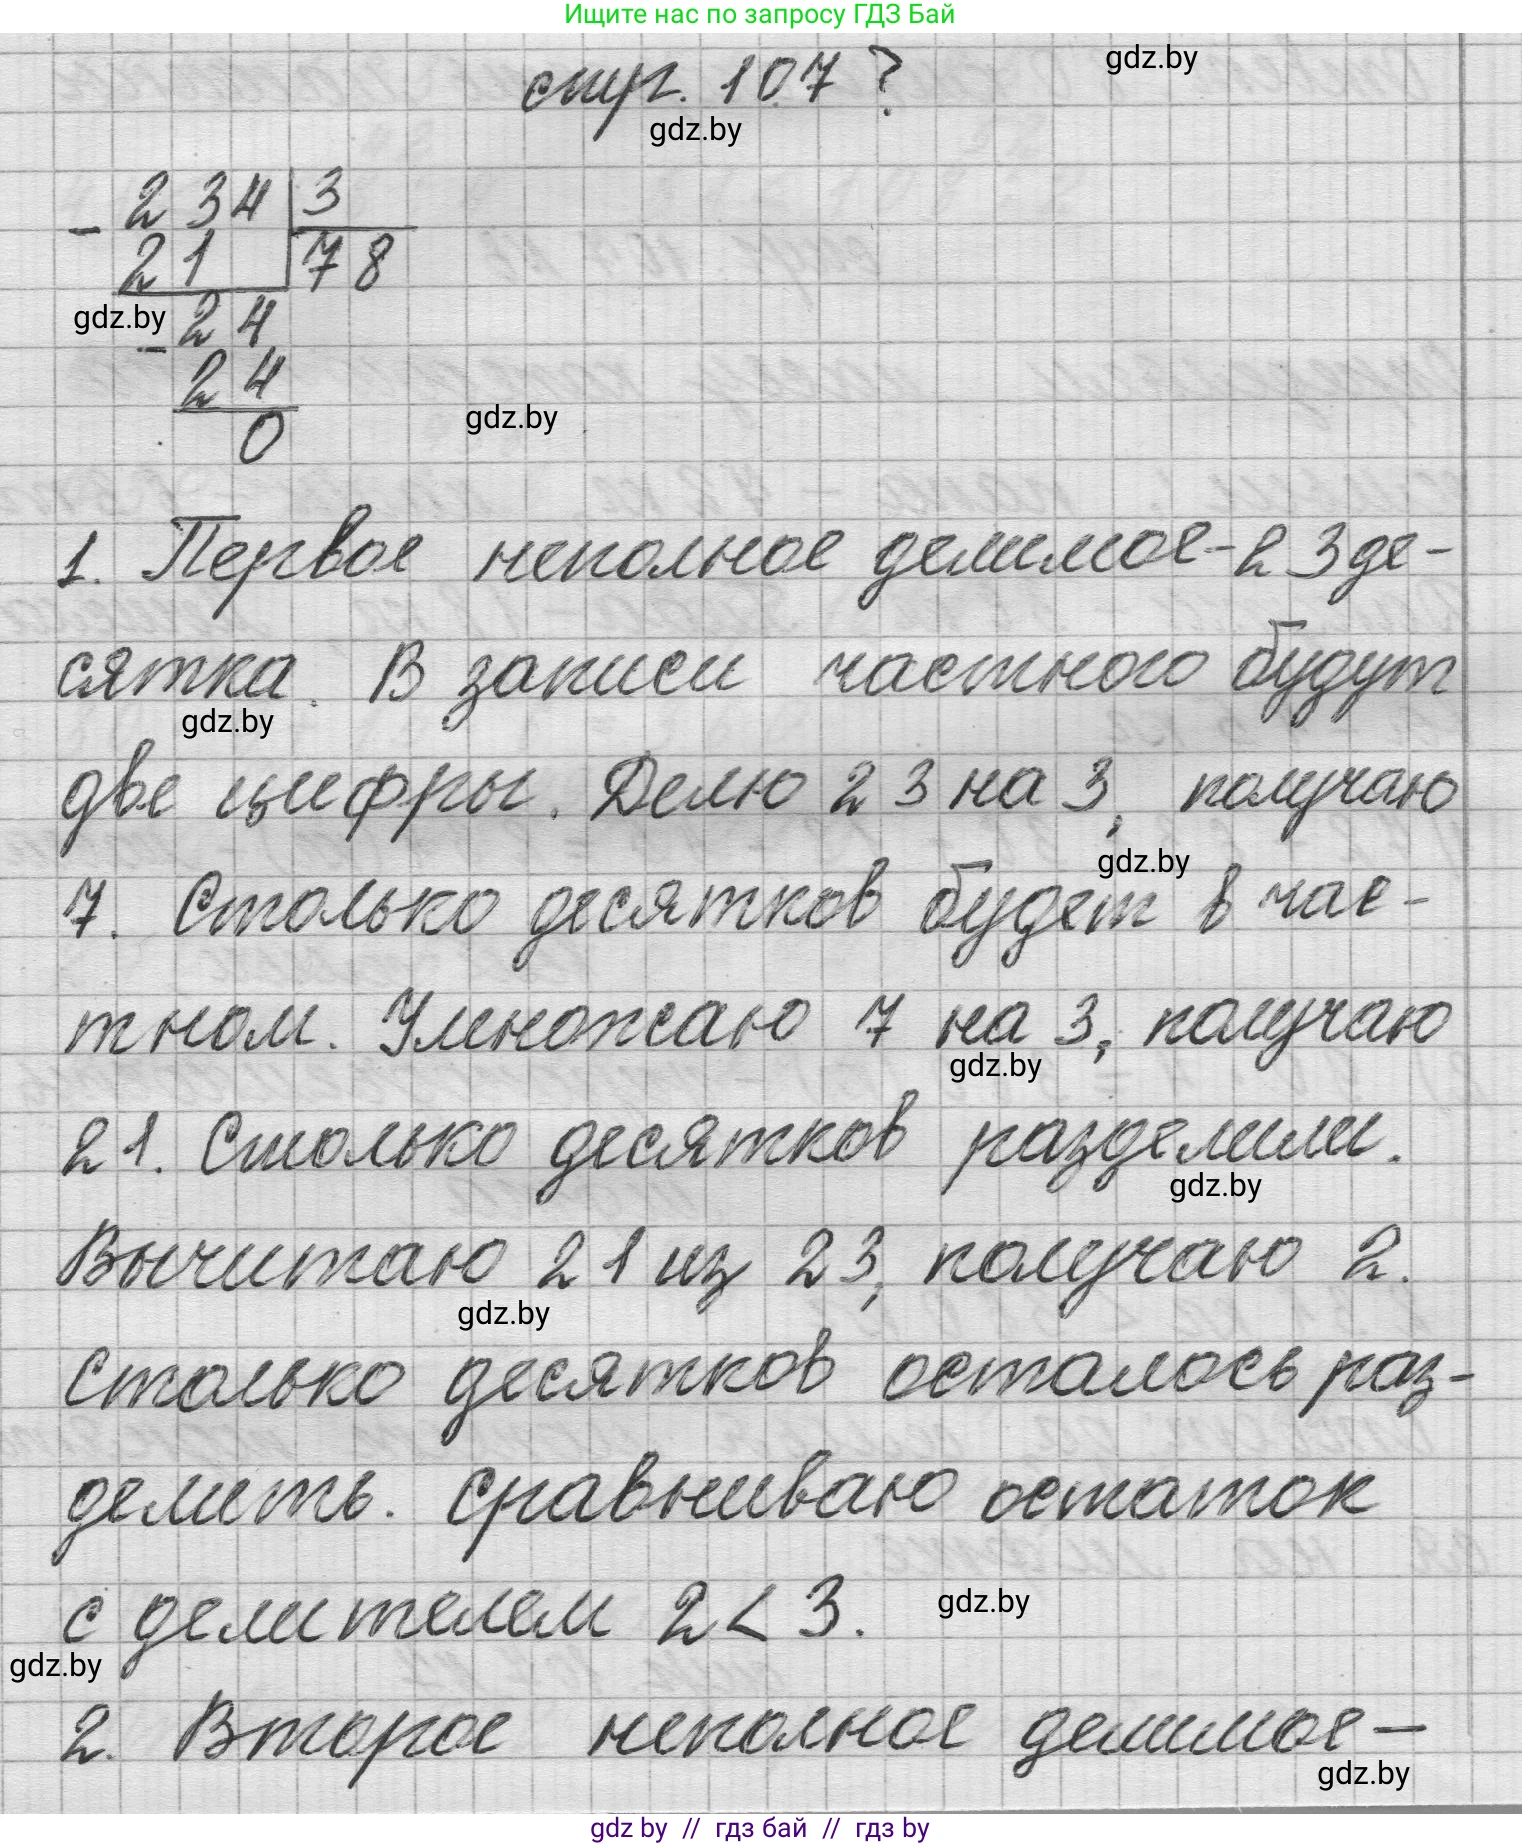 Ищите нас по запросу ГДЗ Бай
gdz.by
стр. 107 ?
gdz.by
- 234 3
21 78
gdz.by
- 24
24
gdz.by
0
1. Первое неполное делимое - 23 де-
сятка. В записи частного будут
gdz.by
две цифры. Делю 23 на 3, получаю
gdz.by
7. Столько десятков будет в час-
тном. Умножаю 7 на 3, получаю
gdz.by
21. Столько десятков разделили.
gdz.by
Вычитаю 21 из 23, получаю 2.
gdz.by
Столько десятков осталось раз-
делить. Сравниваю остаток
с делителем 2 < 3.
gdz.by
gdz.by
2. Второе неполное делимое —
gdz.by
gdz by // гдз бай // гдз by